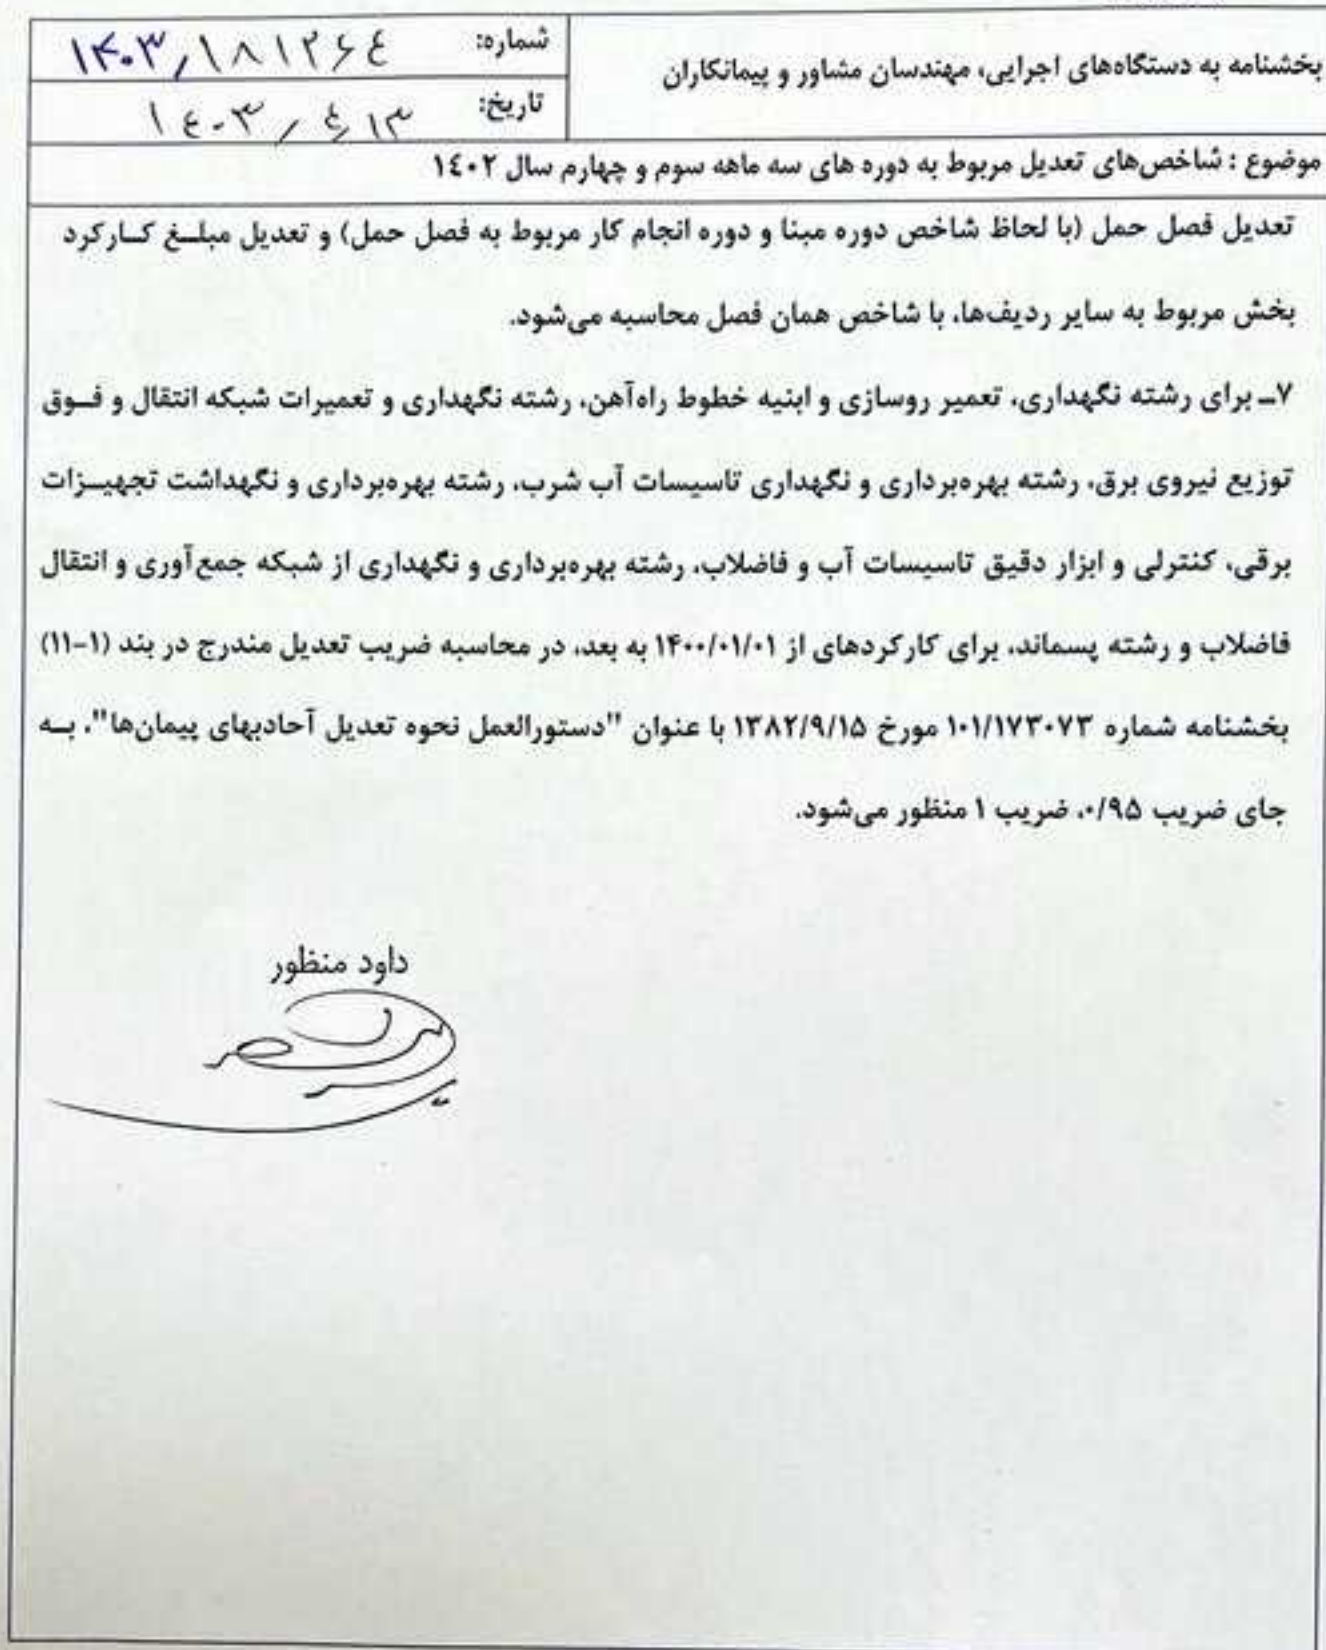 بخشنامه به دستگاه‌های اجرایی، مهندسان مشاور و پیمانکاران
شماره: ۱۴۰۳/۱۸۱۲۶۴
تاریخ: ۱۴۰۳/۴/۱۳
موضوع : شاخص‌های تعدیل مربوط به دوره های سه ماهه سوم و چهارم سال ۱٤۰۲
تعدیل فصل حمل (با لحاظ شاخص دوره مبنا و دوره انجام کار مربوط به فصل حمل) و تعدیل مبلغ کارکرد
بخش مربوط به سایر ردیف‌ها، با شاخص همان فصل محاسبه می‌شود.
۷ـ برای رشته نگهداری، تعمیر روسازی و ابنیه خطوط راه‌آهن، رشته نگهداری و تعمیرات شبکه انتقال و فوق
توزیع نیروی برق، رشته بهره‌برداری و نگهداری تاسیسات آب شرب، رشته بهره‌برداری و نگهداشت تجهیزات
برقی، کنترلی و ابزار دقیق تاسیسات آب و فاضلاب، رشته بهره‌برداری و نگهداری از شبکه جمع‌آوری و انتقال
فاضلاب و رشته پسماند، برای کارکردهای از ۱۴۰۰/۰۱/۰۱ به بعد، در محاسبه ضریب تعدیل مندرج در بند (۱-۱۱)
بخشنامه شماره ۱۰۱/۱۷۳۰۷۳ مورخ ۱۳۸۲/۹/۱۵ با عنوان "دستورالعمل نحوه تعدیل آحادبهای پیمان‌ها"، به
جای ضریب ۰/۹۵، ضریب ۱ منظور می‌شود.
داود منظور